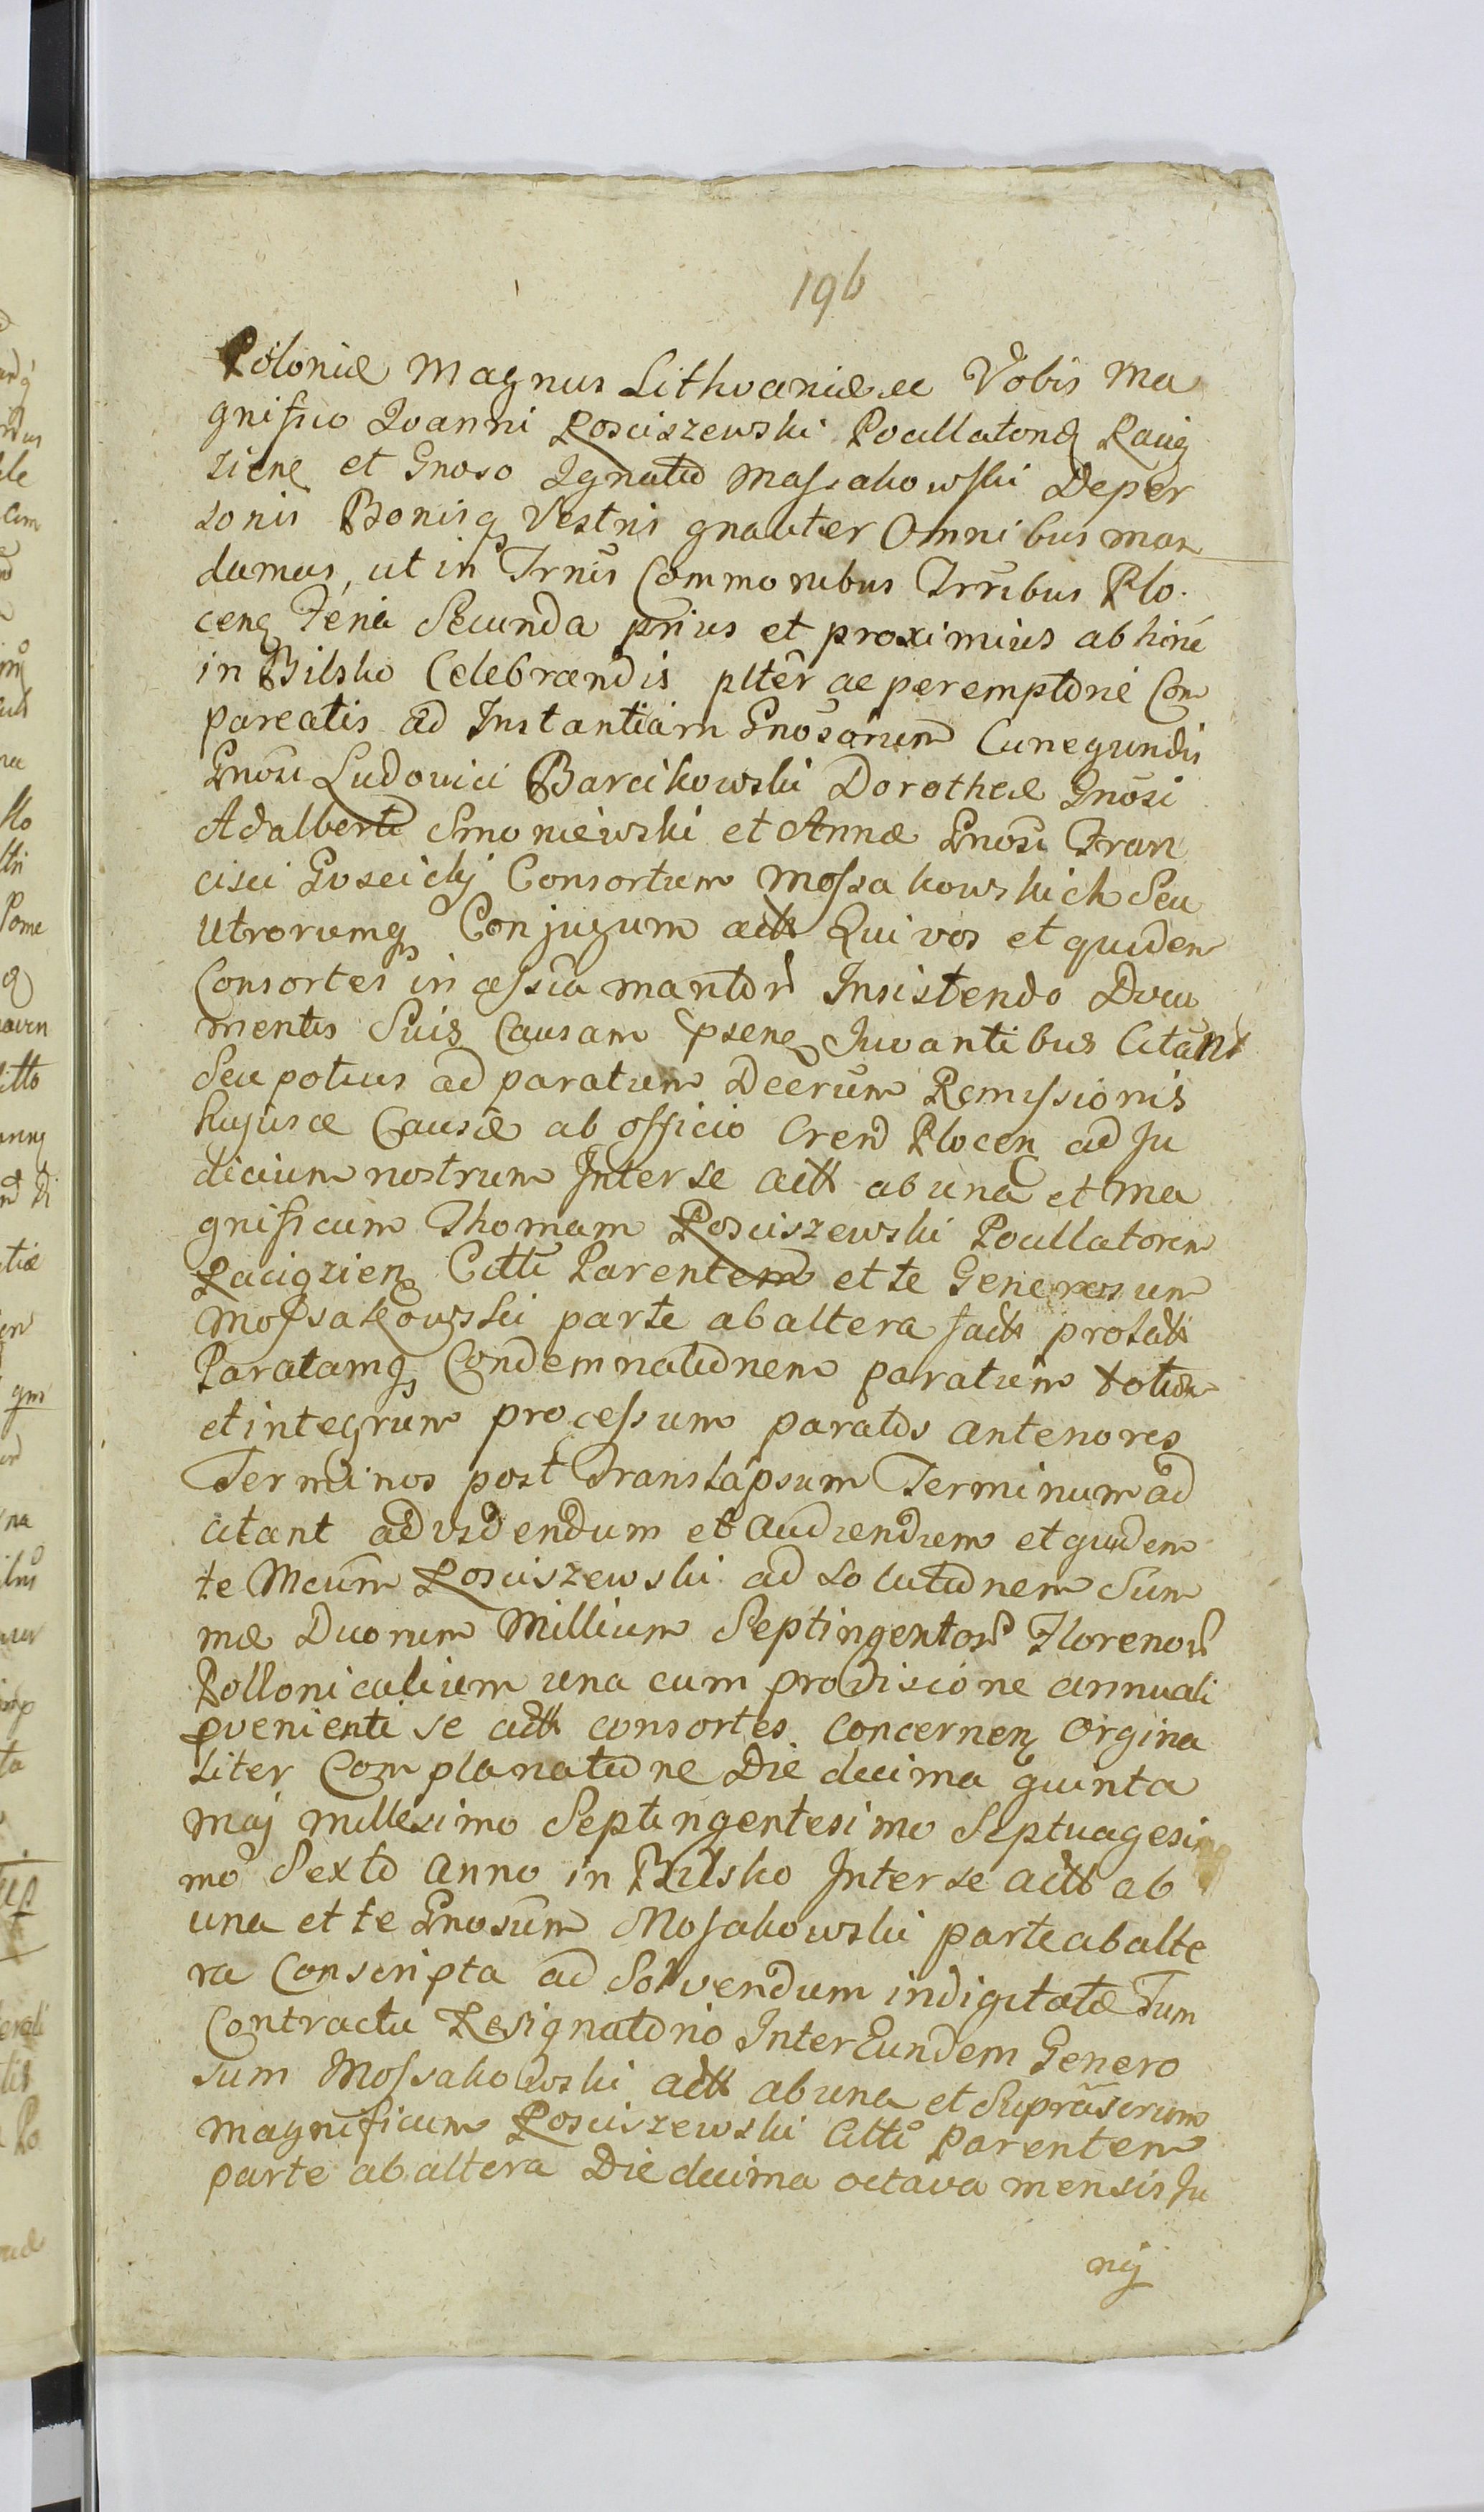 196
Poloniæ Magnus Lithvaniæ ee Vobis Ma
gnifico Joanni Rosciszewski Pocillatorę Raciąg
zienę et Gnoso Ignatio Massakowski De per
sonis Bonisq Vestris gnaliter Omnibus man
damus, ut in Trnis Commonibus Trribus Plo
cenę Feria Secunda prius et proximius ab hinc
in Bilsko Celebrandis plter ac peremptorie Com
pareatis ad Instantiam Gnosorum Cunegundis
Gnosi Ludovici Barcikowski Dorotheæ Gnosi
Adalberti Smoniewski et Annæ Gnosi Fran
cisci Goscicky Consortum Mossakowskich Seu
Utrorumq Conjugum actt Qui vos et quidem
Consortes in assia mantor Insistendo Docu
mentis Suis Causam psenę Juvantibus Citant
Seu potius ad paratum Decrum Remissionis
hujusce Causæ ab officio Cren Plocen ad Ju
dicium nostrum Inter se actt ab una et Ma
gnificum Thomam Rosciszewski Pocillatorem
Raciązienę Citti Parentem et te Generosum
Mossakowski parte ab altera factt prolatt
Paratamq Condemnationem paratum totum
et integrum processum paratos anteriores
Terminos post Translapsum Terminum ad
citant ad videndum et audiendum et quidem
te Mcum Rosciszewski ad Solutionem Sum
mæ Duorum Millium Septingentor Florenor
Pollonicalium una cum prodisione annuali
pvenienti se actt consortes concernenę orgina
liter Complanatione Die decima quinta
Maj millesimo Septingentesimo Septuagesi
mo Sexto anno in Bilsko Inter se actt ab
una et te Gnosum Mosakowski parte ab alte
ra Conscripta ad Solvendum indigitatæ Tum
Contractu Resignatorio Inter Eundem Genero
sum Mossakowski actt ab una et Suprascrium
Magnificum Rosciszewski Citti Parentem
parte ab altera Die decima octava mensis Ju
nij